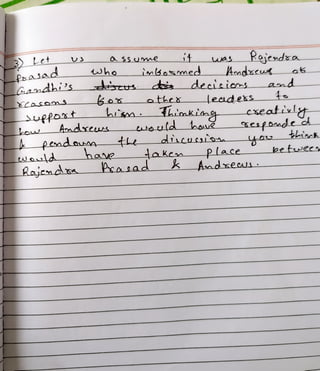 3) Let us assume it was Rajendra
Prasad who informed Andrews of
Gandhi's discus dis decisions and
reasons for other leaders to
support him. Thinking creativly
how Andrews would have responded
& pendown the discussion you think
would have taken place between
Rajendra Prasad & Andrews.